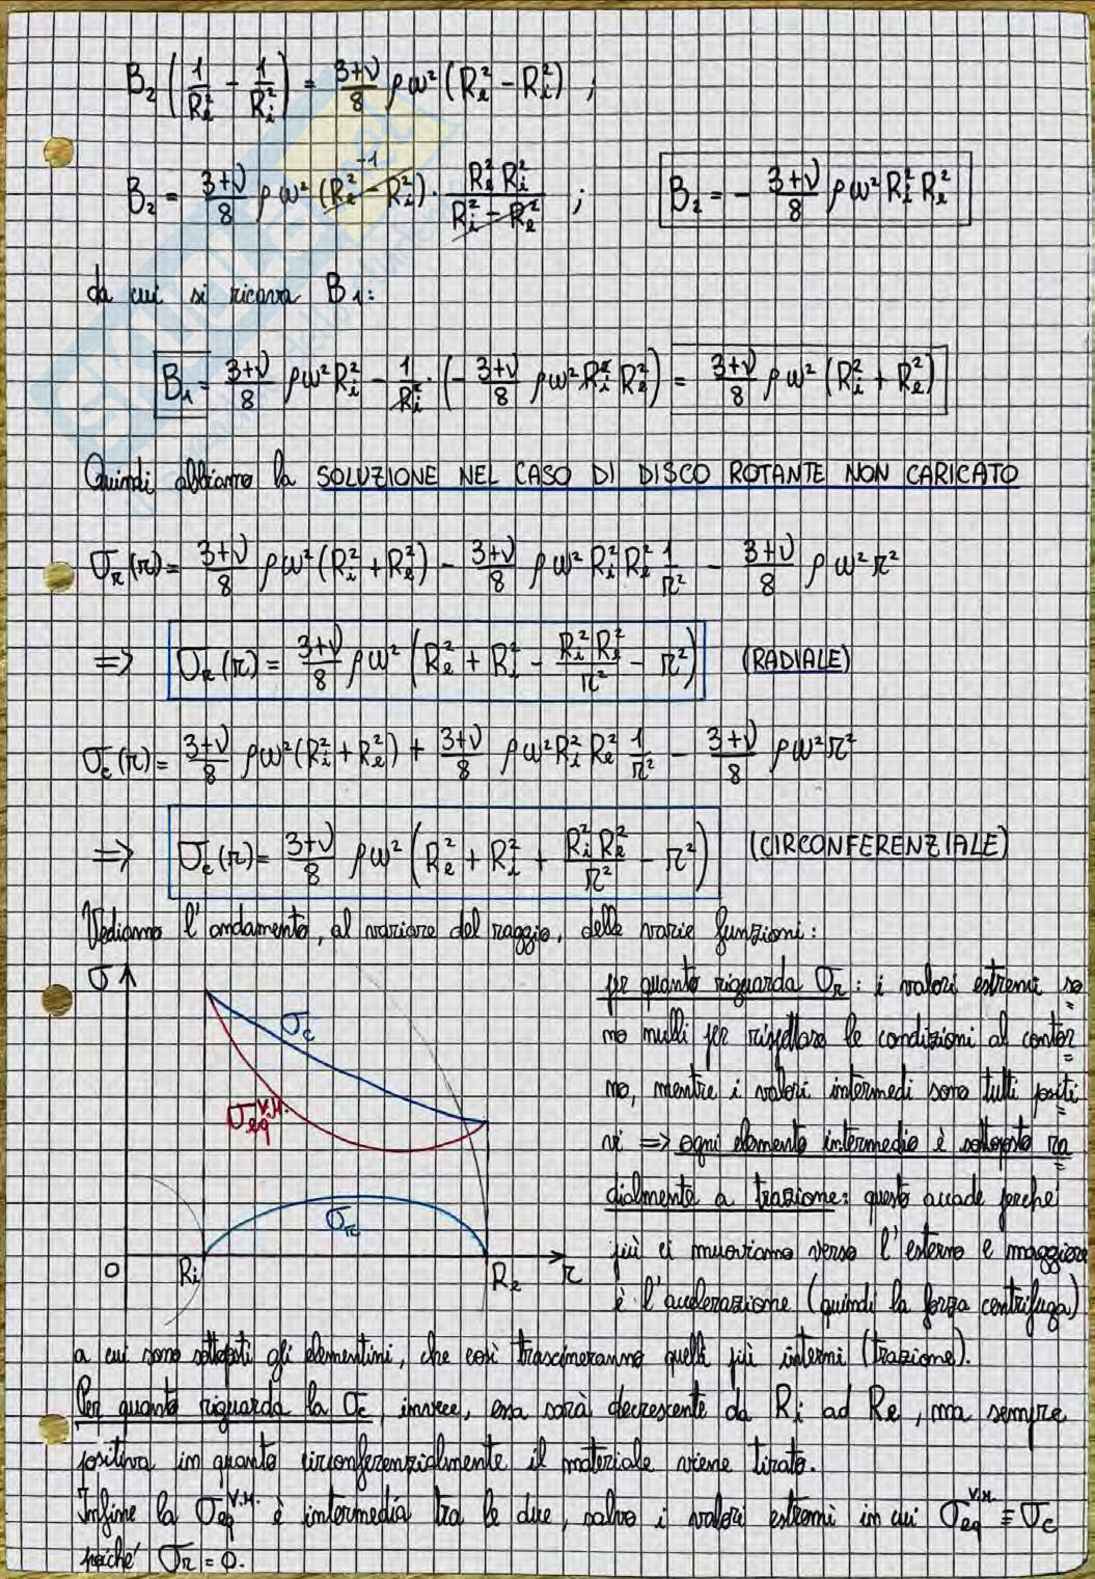 B₂ (1/Rₑ² - 1/Rᵢ²) = 3+ν/8 ρω² (Rₑ² - Rᵢ²) ;
B₂ = 3+ν/8 ρω² (Rₑ² - Rᵢ²)⁻¹ · Rₑ² Rᵢ²/Rᵢ² - Rₑ² ; B₂ = - 3+ν/8 ρω² Rᵢ² Rₑ²
da cui si ricava B₁:
B₁ = 3+ν/8 ρω² Rᵢ² - 1/Rᵢ² · (- 3+ν/8 ρω² Rᵢ² Rₑ²) = 3+ν/8 ρω² (Rᵢ² + Rₑ²)
Quindi abbiamo la SOLUZIONE NEL CASO DI DISCO ROTANTE NON CARICATO
σᵣ(r) = 3+ν/8 ρω² (Rᵢ² + Rₑ²) - 3+ν/8 ρω² Rᵢ² Rₑ² 1/r² - 3+ν/8 ρω² r²
=> σᵣ(r) = 3+ν/8 ρω² (Rₑ² + Rᵢ² - Rᵢ² Rₑ²/r² - r²) (RADIALE)
σc(r) = 3+ν/8 ρω² (Rᵢ² + Rₑ²) + 3+ν/8 ρω² Rᵢ² Rₑ² 1/r² - 3+ν/8 ρω² r²
=> σc(r) = 3+ν/8 ρω² (Rₑ² + Rᵢ² + Rᵢ² Rₑ²/r² - r²) (CIRCONFERENZIALE)
Vediamo l'andamento, al variare del raggio, delle varie funzioni:
σ
σc
σeq V.M.
σᵣ
O Rᵢ Rₑ r
per quanto riguarda σᵣ: i valori estremi so=
no nulli per rispettare le condizioni al contor=
no, mentre i valori intermedi sono tutti positi=
vi => ogni elemento intermedio è sottoposto ra=
dialmente a trazione: questo accade perché
più ci muoviamo verso l'esterno e maggiore
è l'accelerazione (quindi la forza centrifuga)
a cui sono sottoposti gli elementini, che così trascineranno quelli più interni (trazione).
Per quanto riguarda la σc, invece, essa sarà decrescente da Rᵢ ad Rₑ, ma sempre
positiva in quanto circonferenzialmente il materiale viene tirato.
Infine la σeq V.M. è intermedia tra le due, salvo i valori estremi in cui σeq V.M. ≡ σc
poiché σᵣ = 0.